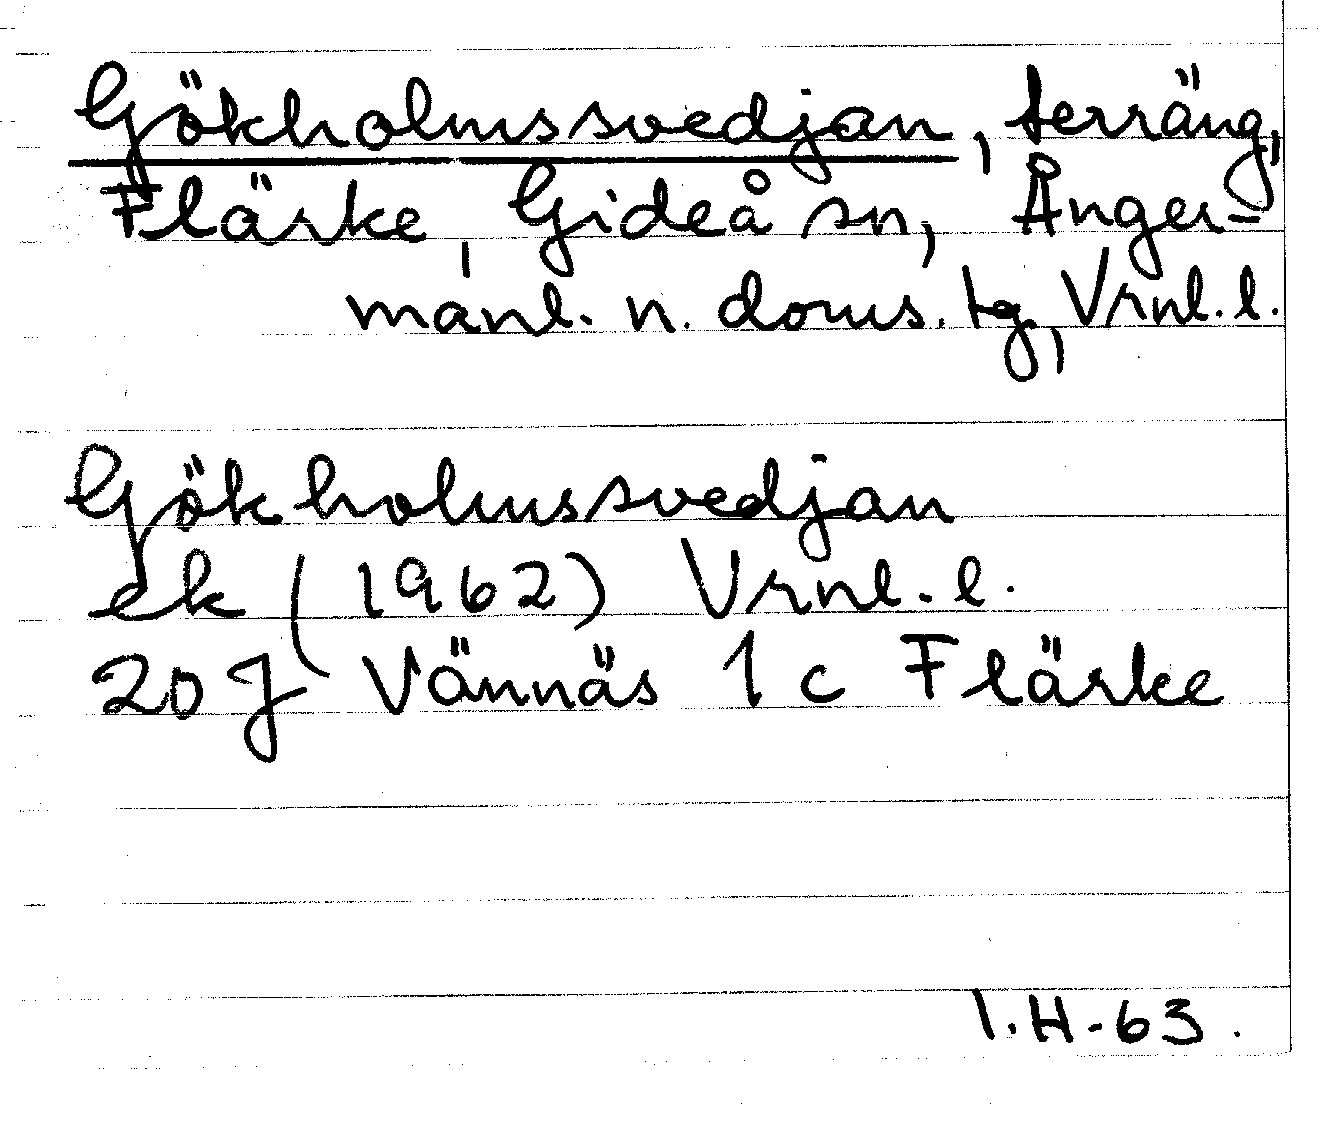 Gökholmssvedjan, terräng,
Flärke, Gideå sn, Ånger-
manl. n. doms. tg, Vrnl. l.
Gökholmssvedjan
ek (1962) Vrnl. l.
20 J Vännäs 1 c Flärke
I.H-63.